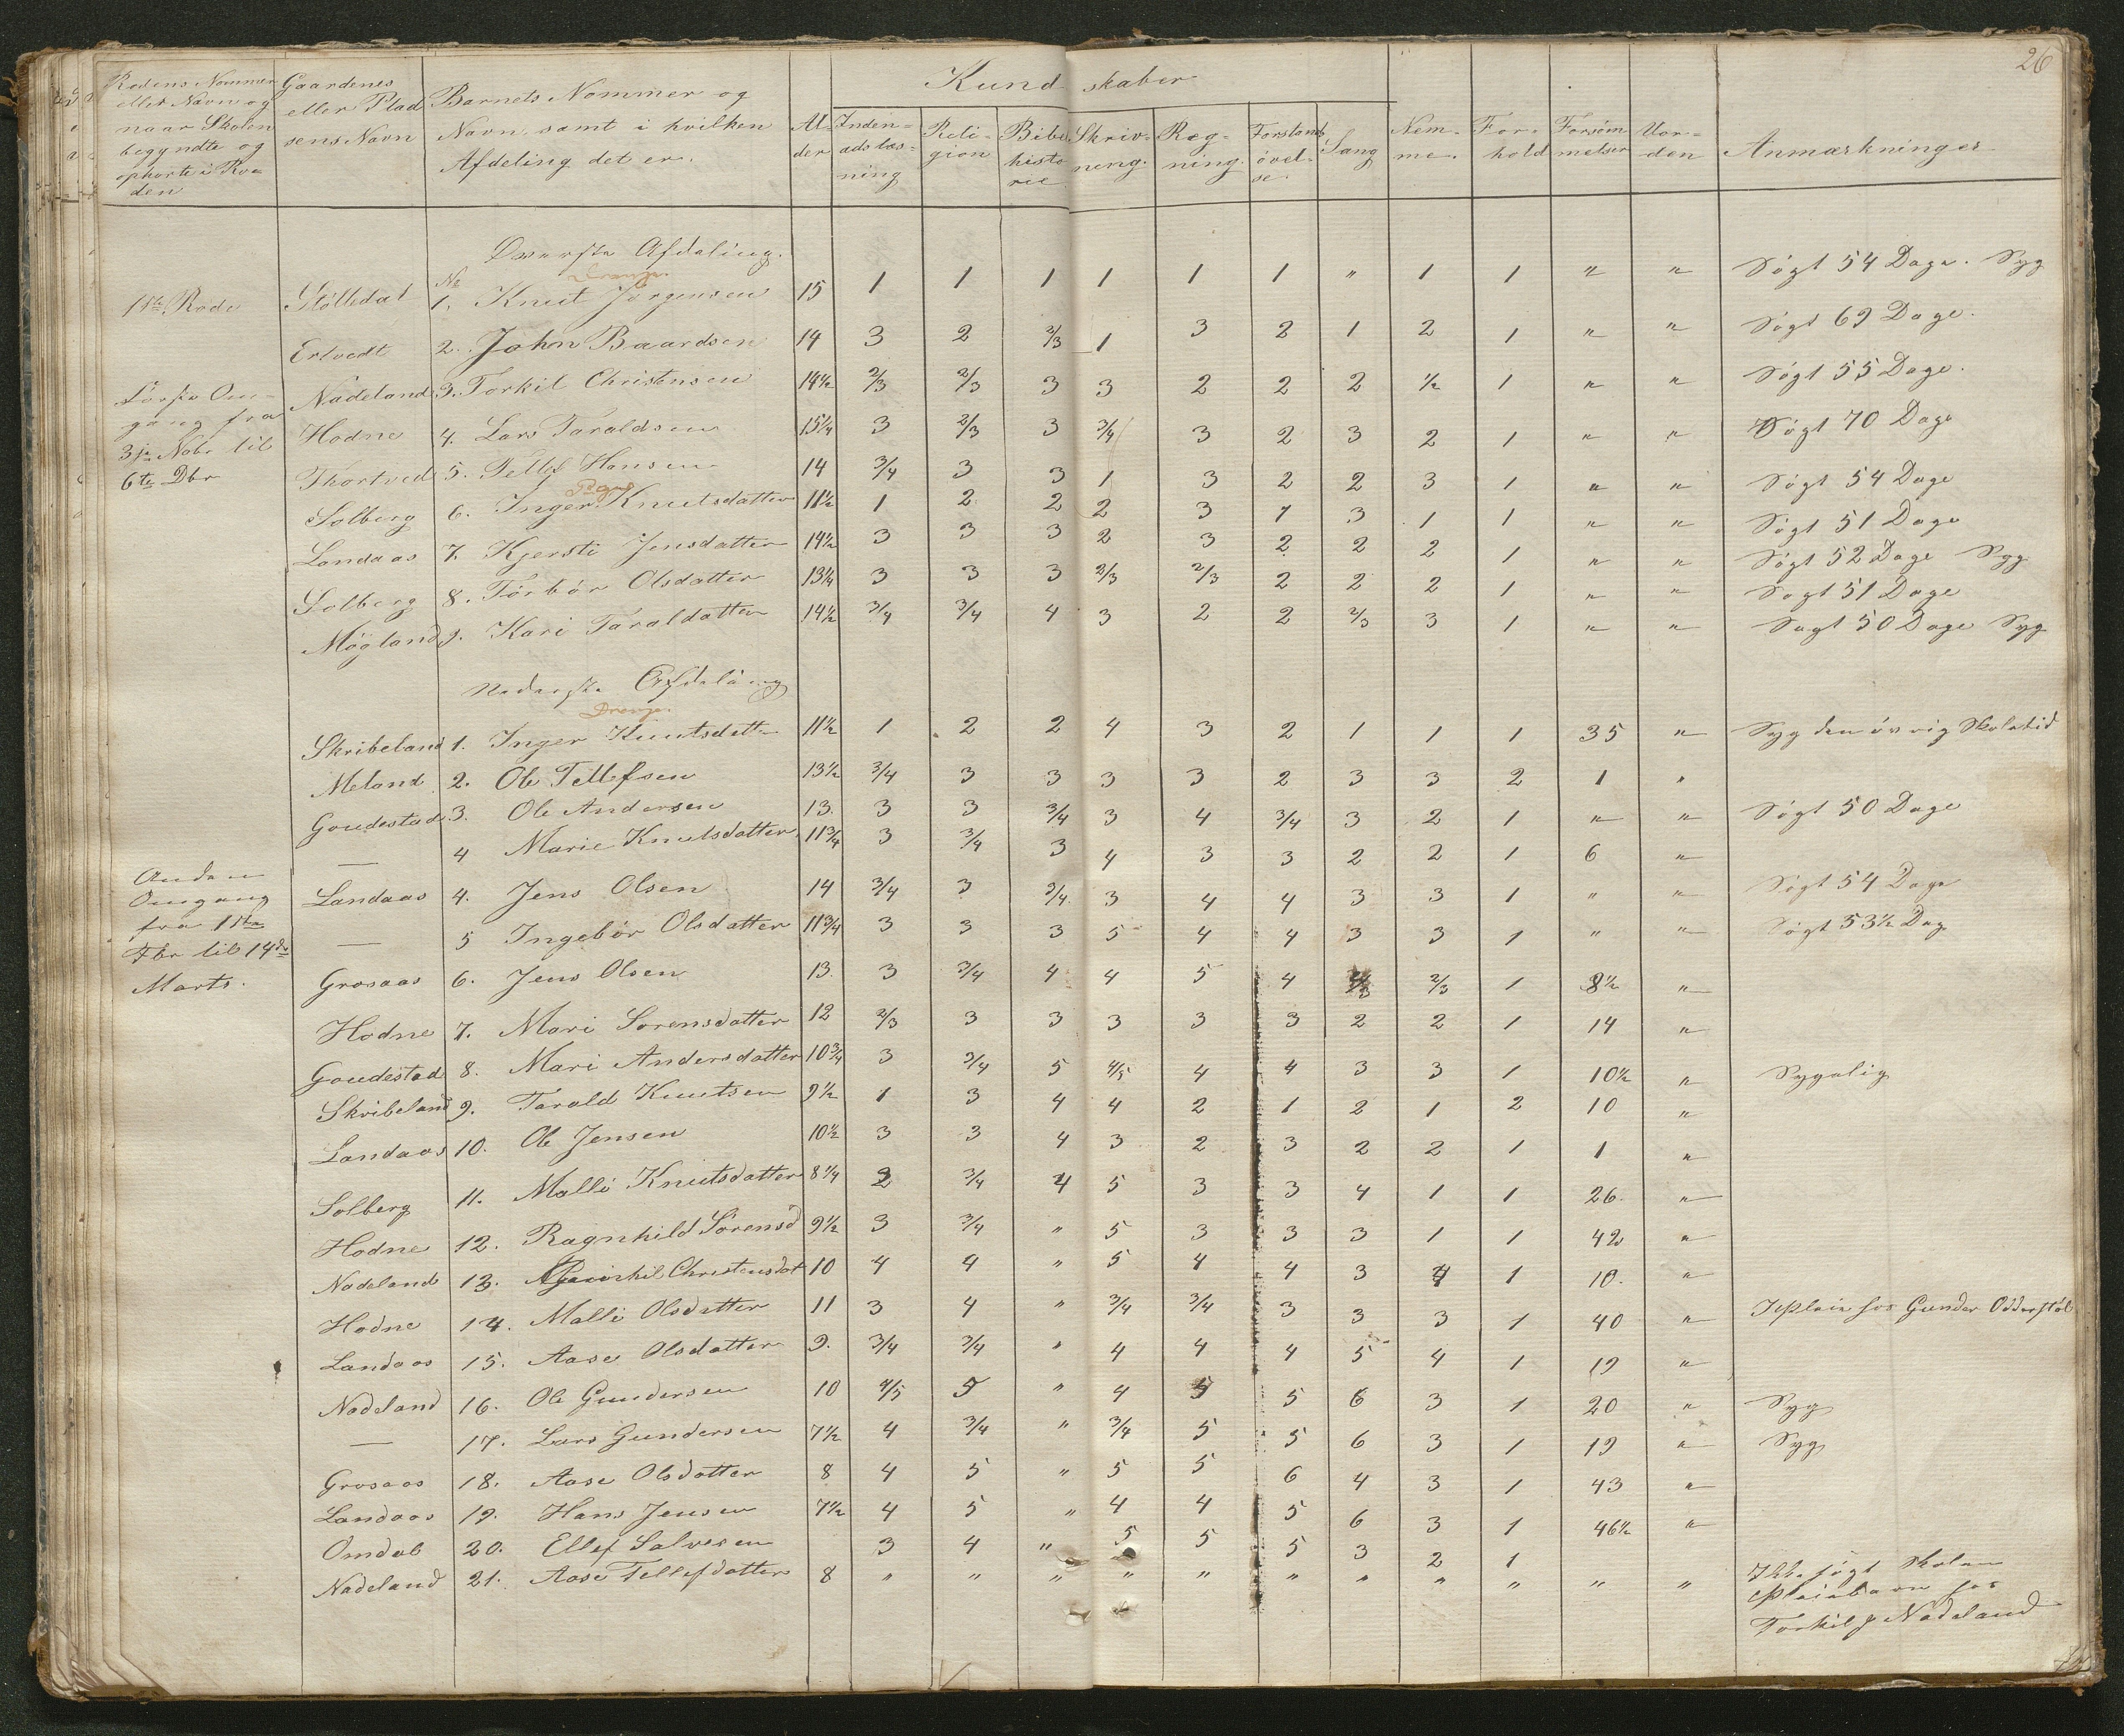 26
Rodens Nommer eller Navn og naar Skolen begyndte og ophørte i Roden
Gaardenes eller Pladsens Navn
Barnets Nommer og Navn samt i hvilken Afdeling det er.
Alder
Kundskaber
Indenadslæsning
Religion
Bibelhistorie
Skrivning.
Regning.
Forstandsøvelse.
Sang
Nemme.
Forhold
Forsømmelser
Uorden
Anmærkninger
Øverste Afdeling.
Drenge.
1ste Rode Stølledal No 1. Knut Jørgensen 15 1 1 1 1 1 1 " 1 1 " " Søgt 54 Dage. Syg
Ertvedt 2. John Baardsen 14 3 2 2/3 1 3 2 1 2 1 " " Søgt 69 Dage.
Første Omgang fra 3die Nobr til 6te Dbr
Nädeland 3. Torkil Christensen 14½ 2/3 2/3 3 3 2 2 2 ½ 1 " " Søgt 55 Dage.
Hodne 4. Lars Taraldsen 15¼ 3 2/3 3 3/4 3 2 3 2 1 " " Søgt 70 Dage
Thortved 5. Tellef Hansen 14 3/4 3 3 1 3 2 2 3 1 " " Søgt 54 Dage
Piger
Solberg 6. Inger Knutsdatter 11½ 1 2 2 2 3 1 3 1 1 " " Søgt 51 Dage
Landaas 7. Kjersti Jensdatter 14½ 3 3 3 2 3 2 2 2 1 " " Søgt 52 Dage Syg
Solberg 8. Tørbør Olsdatter 13¼ 3 3 3 2/3 2/3 2 2 2 1 " " Søgt 51 Dage
Møgland 9. Kari Taraldatter 14½ 3/4 3/4 4 3 2 2 2/3 3 1 " " Søgt 50 Dage Syg
Nederste Afdeling
Drenge.
Skribeland 1. Inger Knutsdatter 11½ 1 2 2 4 3 2 1 1 1 35 " Syg den øvrig Skoletid
Meland 2. Ole Tellefsen 13½ 3/4 3 3 3 3 2 3 3 2 1 "
Goudestad 3. Ole Andersen 13. 3 3 3/4 3 4 3/4 3 2 1 " " Søgt 50 Dage
— 4 Marie Knutsdatter 11¾ 3 3/4 3 4 3 3 2 2 1 6 "
Anden Omgang fra 1ste Fbr til 14de Marts.
Landaas 4. Jens Olsen 14 3/4 3 3/4 3 4 4 3 3 1 " " Søgt 54 Dage
— 5 Ingebør Olsdatter 11¾ 3 3 3 5 4 4 3 3 1 " " Søgt 53½ Dag
Grosaas 6. Jens Olsen 13. 3 3/4 4 4 5 4 2/3 1 8½ "
Hodne 7. Mari Sørensdatter 12 2/3 3 3 3 3 3 2 2 1 14 "
Goudestad 8. Mari Andersdatter 10¾ 3 3/4 5 4/5 4 4 3 3 1 10½ " Sygelig
Skribeland 9. Tarald Knutsen 9½ 1 3 4 4 2 1 2 1 2 10 "
Landaas 10. Ole Jensen 10½ 3 3 4 3 2 3 2 2 1 1 "
Solberg 11. Malli Knutsdatter 8¼ 2 3/4 4 5 3 3 4 1 1 26. "
Hodne 12. Ragnhild Sørensd 9½ 3 3/4 " 5 3 3 3 1 1 42 "
Nadeland 13. Christensdat 10 4 4 " 5 4 4 3 4 1 10. "
Hodne 14. Malli Olsdatter 11 3 4 " 3/4 3/4 3 3 3 1 40 " I Pleie hos Gunder Odderstøl
Landaas 15. Aase Olsdatter 9. 3/4 3/4 " 4 4 4 5 4 1 19 "
Nadeland 16. Ole Gundersen 10 4/5 5 " 4 5 5 6 3 1 20 " Syg
— 17. Lars Gundersen 7½ 4 3/4 " 3/4 5 5 6 3 1 19 " Syg
Grosaas 18. Aase Olsdatter 8 4 5 " 5 5 6 4 3 1 43 "
Landaas 19. Hans Jensen 7½ 4 5 " 4 4 5 6 3 1 46½ "
Omdal 20. Ellef Salvesen 3 4 " 5 5 5 3 2 1
Nadeland 21. Aase Tellefdatter 8 " " " " " " " " " " " Ikke søgt Skolen
Pleiebarn hos
Torkil p Nadeland